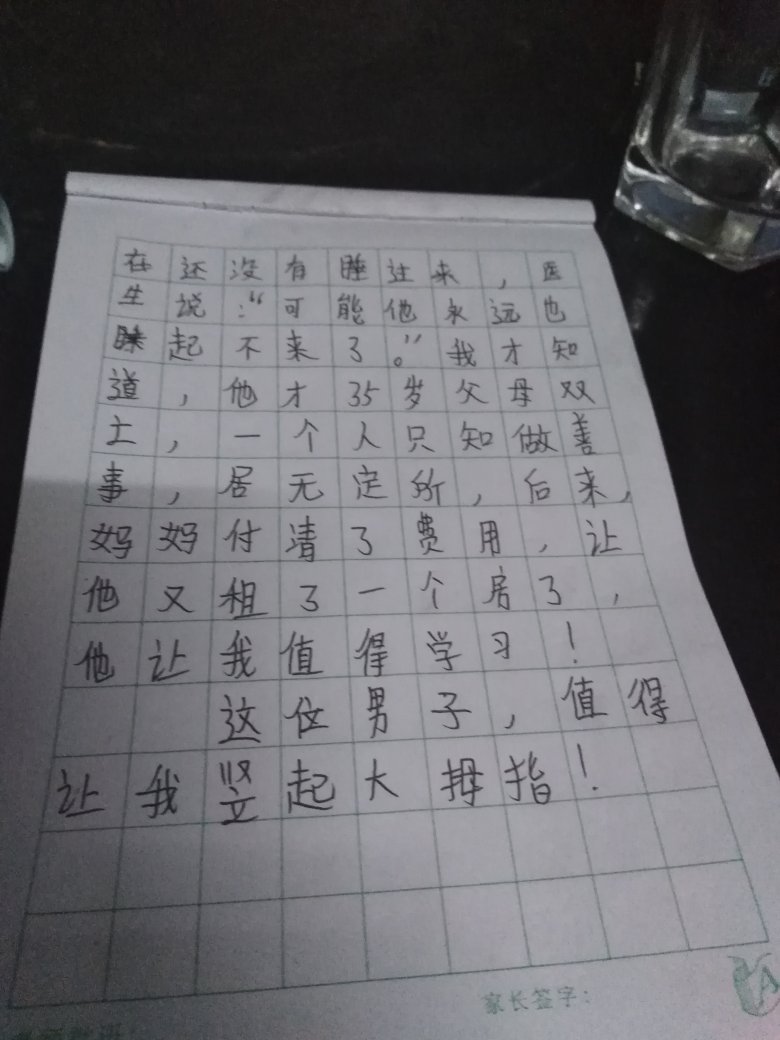 在还没有睡过来，医
生说：“可能他永远也
起不来了。”我才知
道，他才35岁父母双
亡，一个人只知做善
事，居无定所，后来，
妈妈付清了费用，让
他又租了一个居了，
他让我值得学习！
这位男子，值得
让我竖起大拇指！
家长签字：